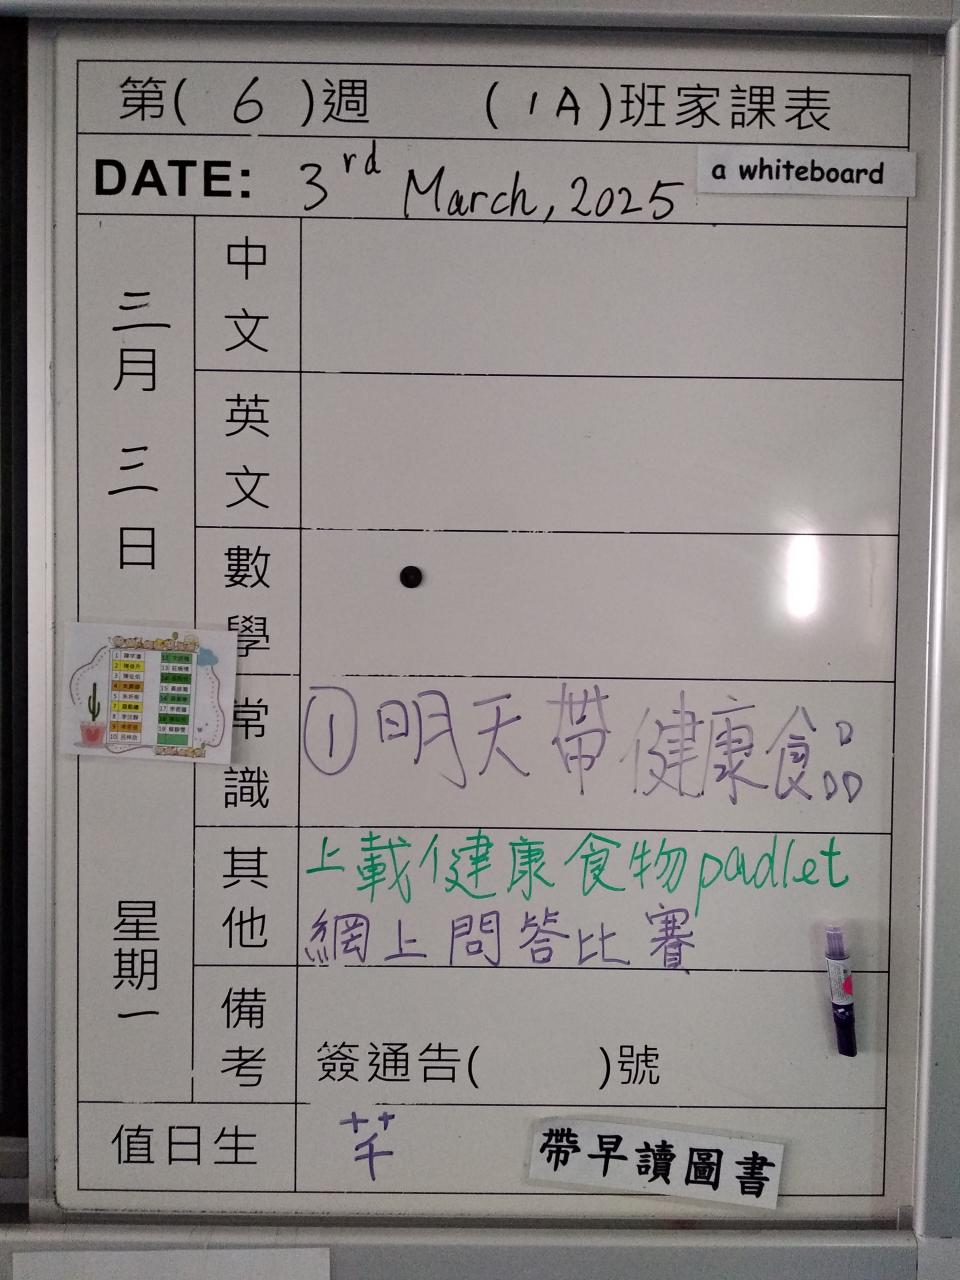 第( 6 )週 ( 1A )班家課表
DATE: 3rd March, 2025
a whiteboard
三月三日
星期一
中文
英文
數學
常識
① 明天帶健康食品
其他
上載健康食物padlet
網上問答比賽
備考
簽通告( )號
值日生
芊
帶早讀圖書